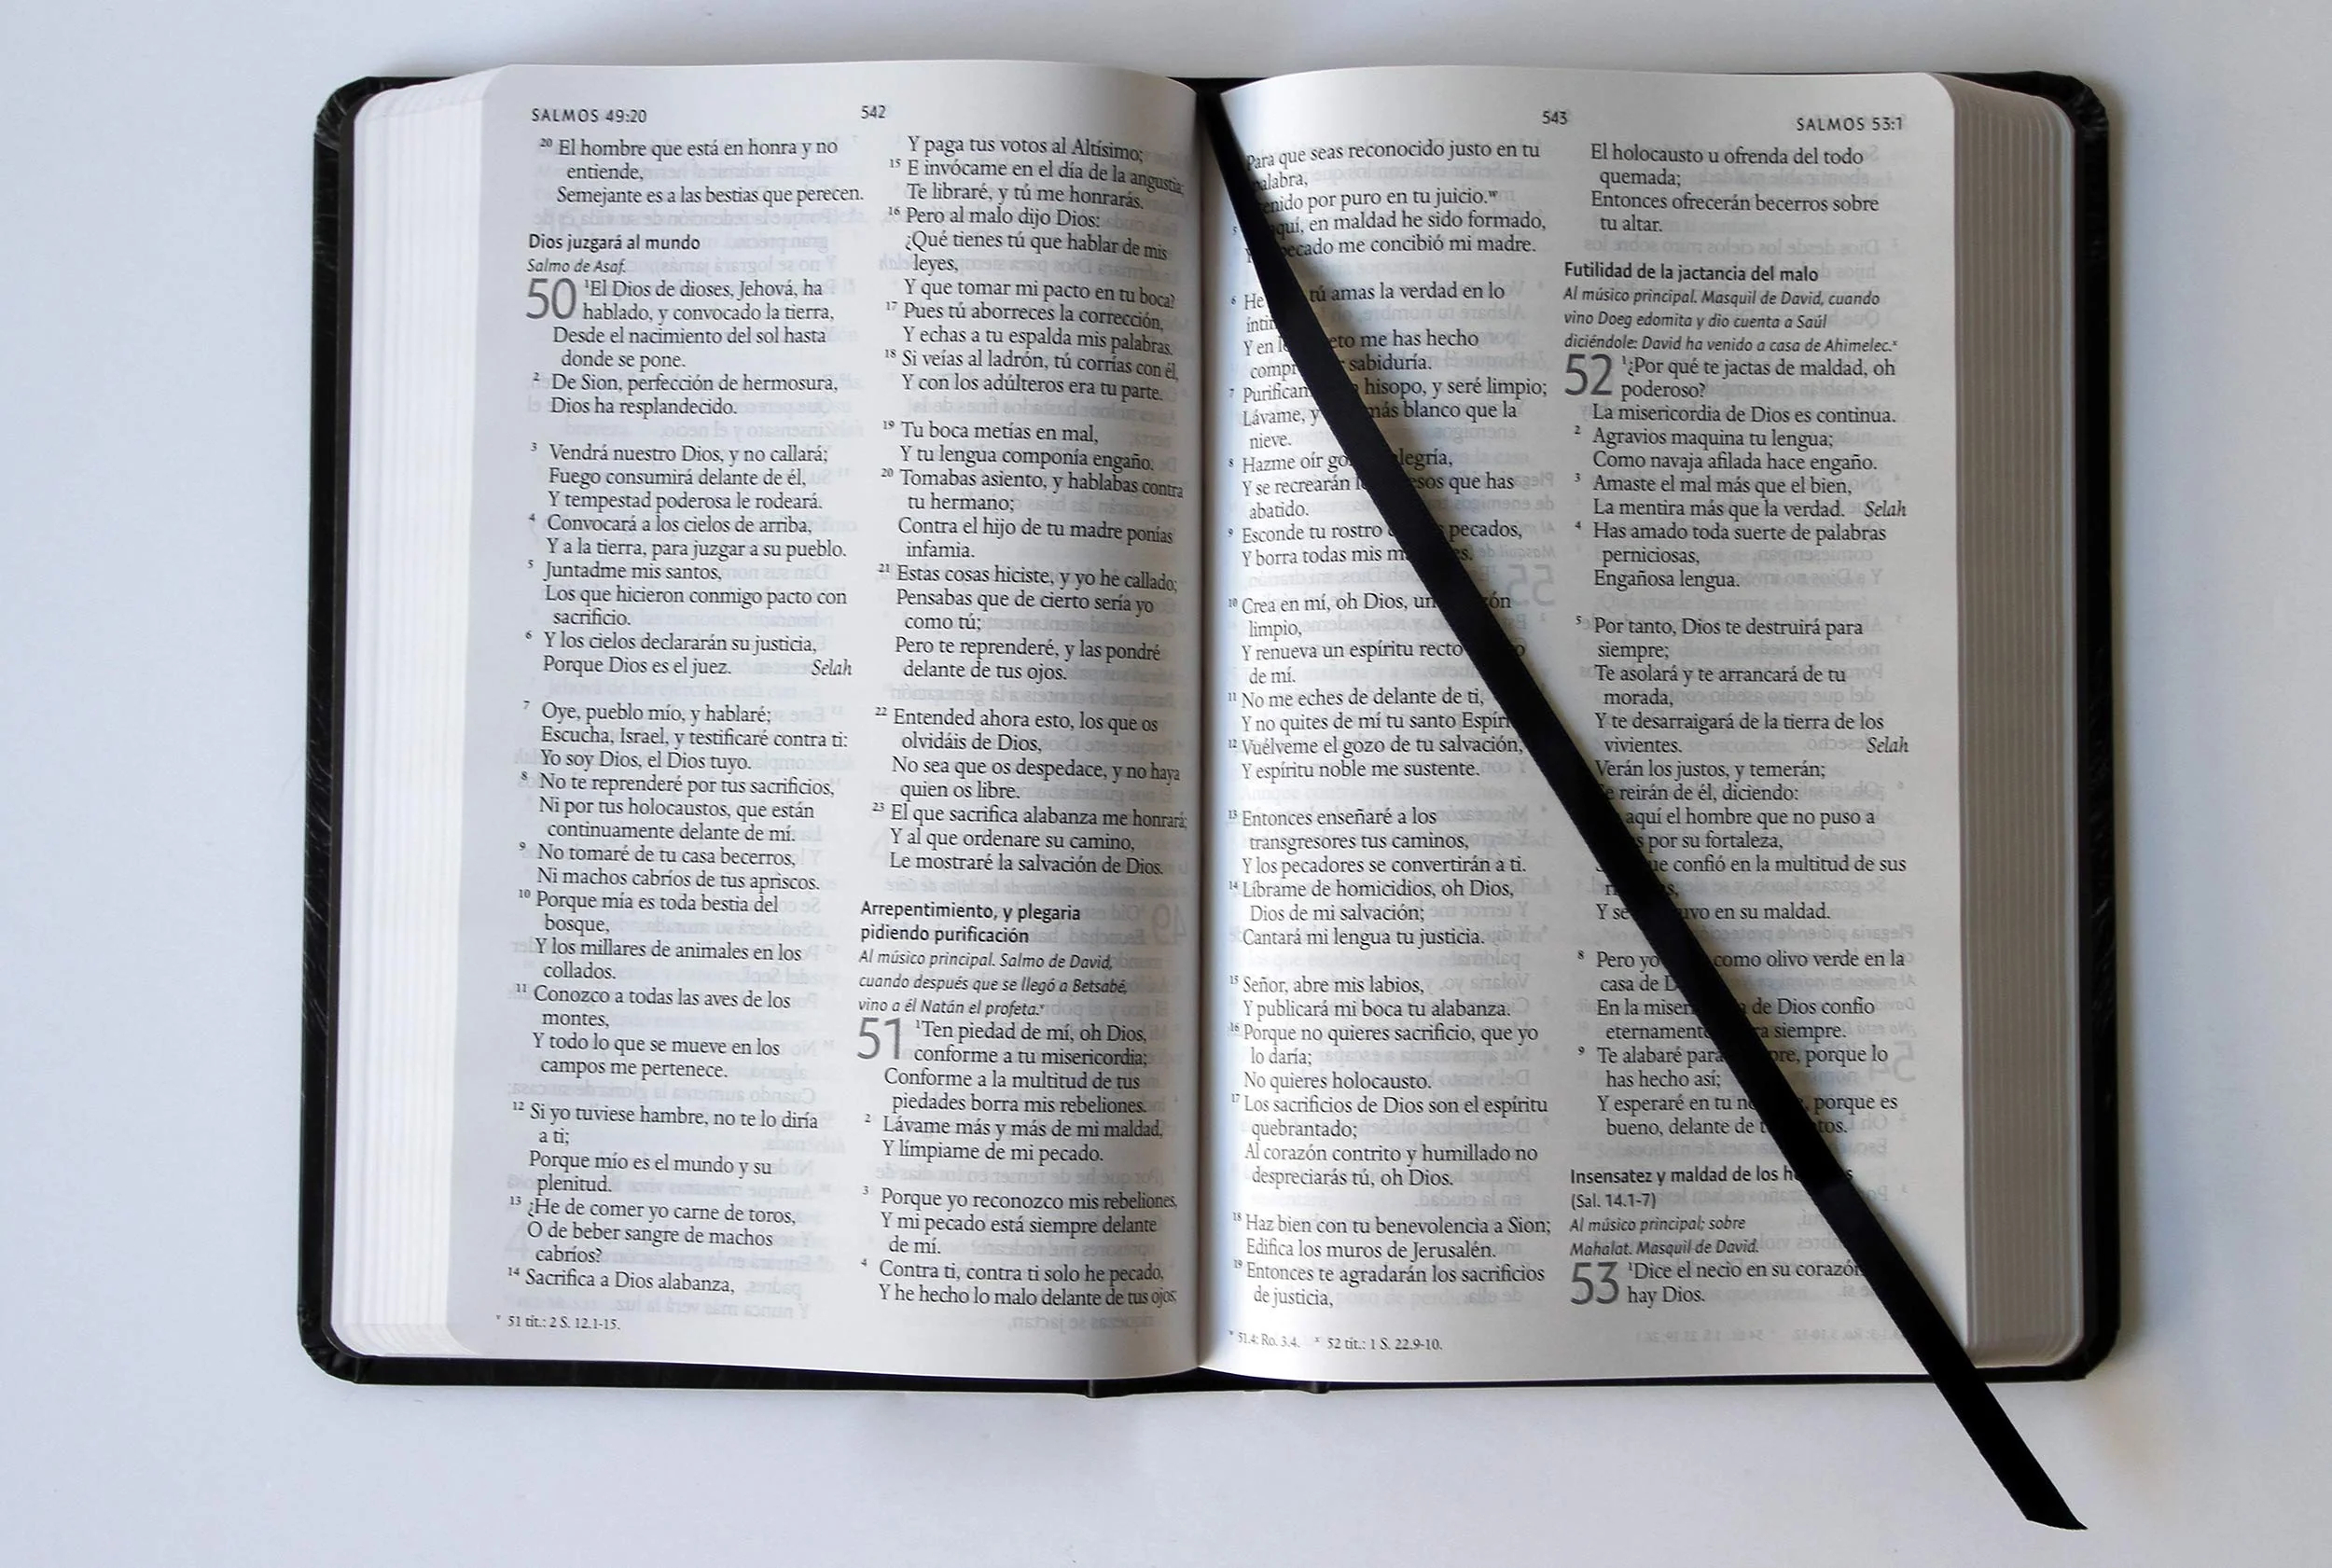 SALMOS 49:20
542
20 El hombre que está en honra y no
entiende,
Semejante es a las bestias que perecen.
Dios juzgará al mundo
Salmo de Asaf.
50 1El Dios de dioses, Jehová, ha
hablado, y convocado la tierra,
Desde el nacimiento del sol hasta
donde se pone.
2 De Sion, perfección de hermosura,
Dios ha resplandecido.
3 Vendrá nuestro Dios, y no callará;
Fuego consumirá delante de él,
Y tempestad poderosa le rodeará.
4 Convocará a los cielos de arriba,
Y a la tierra, para juzgar a su pueblo.
5 Juntadme mis santos,
Los que hicieron conmigo pacto con
sacrificio.
6 Y los cielos declararán su justicia,
Porque Dios es el juez. Selah
7 Oye, pueblo mío, y hablaré;
Escucha, Israel, y testificaré contra ti:
Yo soy Dios, el Dios tuyo.
8 No te reprenderé por tus sacrificios,
Ni por tus holocaustos, que están
continuamente delante de mí.
9 No tomaré de tu casa becerros,
Ni machos cabríos de tus apriscos.
10 Porque mía es toda bestia del
bosque,
Y los millares de animales en los
collados.
11 Conozco a todas las aves de los
montes,
Y todo lo que se mueve en los
campos me pertenece.
12 Si yo tuviese hambre, no te lo diría
a ti;
Porque mío es el mundo y su
plenitud.
13 ¿He de comer yo carne de toros,
O de beber sangre de machos
cabríos?
14 Sacrifica a Dios alabanza,
Y paga tus votos al Altísimo;
15 E invócame en el día de la angustia;
Te libraré, y tú me honrarás.
16 Pero al malo dijo Dios:
¿Qué tienes tú que hablar de mis
leyes,
Y que tomar mi pacto en tu boca?
17 Pues tú aborreces la corrección,
Y echas a tu espalda mis palabras.
18 Si veías al ladrón, tú corrías con él,
Y con los adúlteros era tu parte.
19 Tu boca metías en mal,
Y tu lengua componía engaño.
20 Tomabas asiento, y hablabas contra
tu hermano;
Contra el hijo de tu madre ponías
infamia.
21 Estas cosas hiciste, y yo he callado;
Pensabas que de cierto sería yo
como tú;
Pero te reprenderé, y las pondré
delante de tus ojos.
22 Entended ahora esto, los que os
olvidáis de Dios,
No sea que os despedace, y no haya
quien os libre.
23 El que sacrifica alabanza me honrará;
Y al que ordenare su camino,
Le mostraré la salvación de Dios.
Arrepentimiento, y plegaria
pidiendo purificación
Al músico principal. Salmo de David,
cuando después que se llegó a Betsabé,
vino a él Natán el profeta.v
51 1Ten piedad de mí, oh Dios,
conforme a tu misericordia;
Conforme a la multitud de tus
piedades borra mis rebeliones.
2 Lávame más y más de mi maldad,
Y límpiame de mi pecado.
3 Porque yo reconozco mis rebeliones,
Y mi pecado está siempre delante
de mí.
4 Contra ti, contra ti solo he pecado,
Y he hecho lo malo delante de tus ojos;
v 51 tít.: 2 S. 12.1-15.
543
SALMOS 53:1
Para que seas reconocido justo en tu
palabra,
tenido por puro en tu juicio.w
5 aquí, en maldad he sido formado,
Y pecado me concibió mi madre.
6 He tú amas la verdad en lo
Y en me has hecho
sabiduría.
7 hisopo, y seré limpio;
Lávame, y más blanco que la
nieve.
8 Hazme oír alegría,
Y se recrearán que has
abatido.
9 Esconde tu rostro pecados,
Y borra todas mis
10 Crea en mí, oh Dios, un
limpio,
Y renueva un espíritu recto
de mí.
11 No me eches de delante de ti,
Y no quites de mí tu santo
12 Vuélveme el gozo de tu salvación,
Y espíritu noble me sustente.
13 Entonces enseñaré a los
transgresores tus caminos,
Y los pecadores se convertirán a ti.
14 Líbrame de homicidios, oh Dios,
Dios de mi salvación;
Cantará mi lengua tu justicia.
15 Señor, abre mis labios,
Y publicará mi boca tu alabanza.
16 Porque no quieres sacrificio, que yo
lo daría;
No quieres holocausto.
17 Los sacrificios de Dios son el espíritu
quebrantado;
Al corazón contrito y humillado no
despreciarás tú, oh Dios.
18 Haz bien con tu benevolencia a Sion;
Edifica los muros de Jerusalén.
19 Entonces te agradarán los sacrificios
de justicia,
El holocausto u ofrenda del todo
quemada;
Entonces ofrecerán becerros sobre
tu altar.
Futilidad de la jactancia del malo
Al músico principal. Masquil de David, cuando
vino Doeg edomita y dio cuenta a Saúl
diciéndole: David ha venido a casa de Ahimelec.x
52 1¿Por qué te jactas de maldad, oh
poderoso?
La misericordia de Dios es continua.
2 Agravios maquina tu lengua;
Como navaja afilada hace engaño.
3 Amaste el mal más que el bien,
La mentira más que la verdad. Selah
4 Has amado toda suerte de palabras
perniciosas,
Engañosa lengua.
5 Por tanto, Dios te destruirá para
siempre;
Te asolará y te arrancará de tu
morada,
Y te desarraigará de la tierra de los
vivientes. Selah
Verán los justos, y temerán;
reirán de él, diciendo:
aquí el hombre que no puso a
por su fortaleza,
confió en la multitud de sus
Y se en su maldad.
8 Pero yo como olivo verde en la
casa de
En la de Dios confío
eternamente siempre.
9 Te alabaré para porque lo
has hecho así;
Y esperaré en tu porque es
bueno, delante de
Insensatez y maldad de los
(Sal. 14.1-7)
Al músico principal; sobre
Mahalat. Masquil de David.
53 1Dice el necio en su corazón
hay Dios.
w 51.4: Ro. 3.4. x 52 tít.: 1 S. 22.9-10.